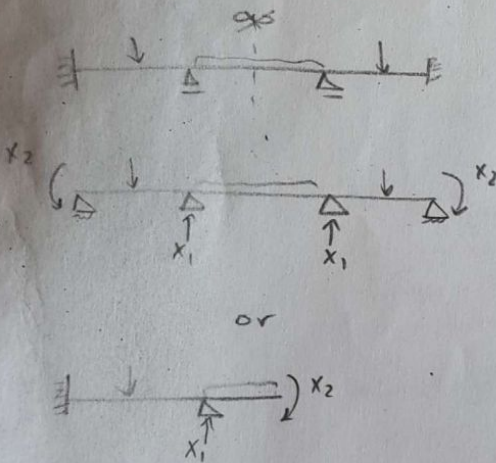 X2
X2
X1
X1
or
X2
X1